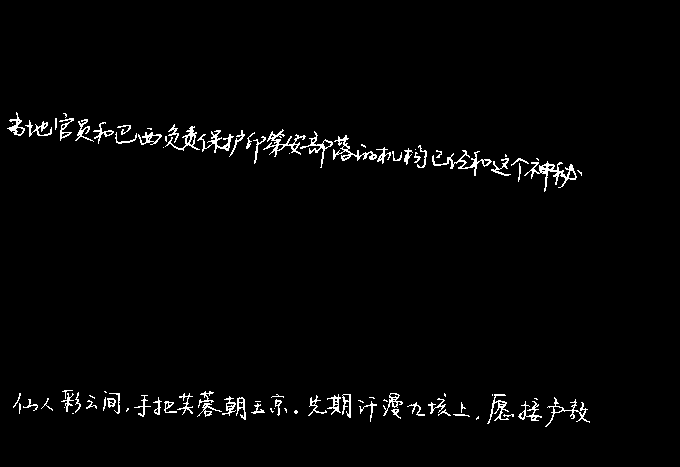 当地官员和巴西负责保护印第安部落的机构已经和这个神秘
仙人彩云间,手把芙蓉朝玉京.先期汗漫九垓上,愿接卢敖